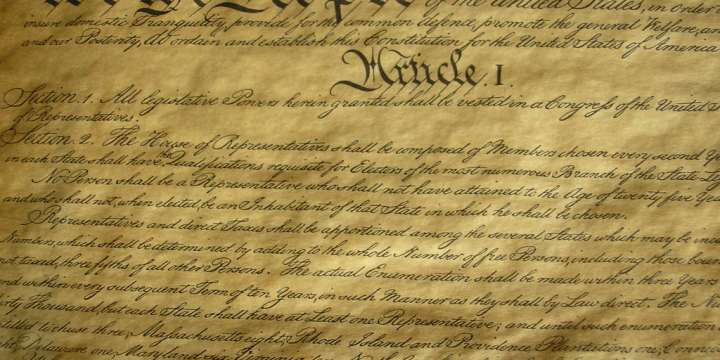 of the United States, in Order
insure domestic Tranquility, provide for the common defence, promote the general Welfare, an
and our Posterity, do ordain and establish this Constitution for the United States of America
Article. I.
Section. 1. All legislative Powers herein granted shall be vested in a Congress of the United
of Representatives.
Section. 2. The House of Representatives shall be composed of Members chosen every second Y
in each State shall have the Qualifications requisite for Electors of the most numerous Branch of the State Leg
No Person shall be a Representative who shall not have attained to the Age of twenty five Yea
and who shall not, when elected, be an Inhabitant of that State in which he shall be chosen.
Representatives and direct Taxes shall be apportioned among the several States which may be incl
Numbers, which shall be determined by adding to the whole Number of free Persons, including those boun
not taxed, three fifths of all other Persons. The actual Enumeration shall be made within three Years
nd within every subsequent Term of ten Years, in such Manner as they shall by Law direct. The N
irty Thousand, but each State shall have at Least one Representative; and until such enumeration
titled to chuse three, Massachusetts eight, Rhode Island and Providence Plantations one, Connec
ght, Delaware one, Maryland six, Virginia